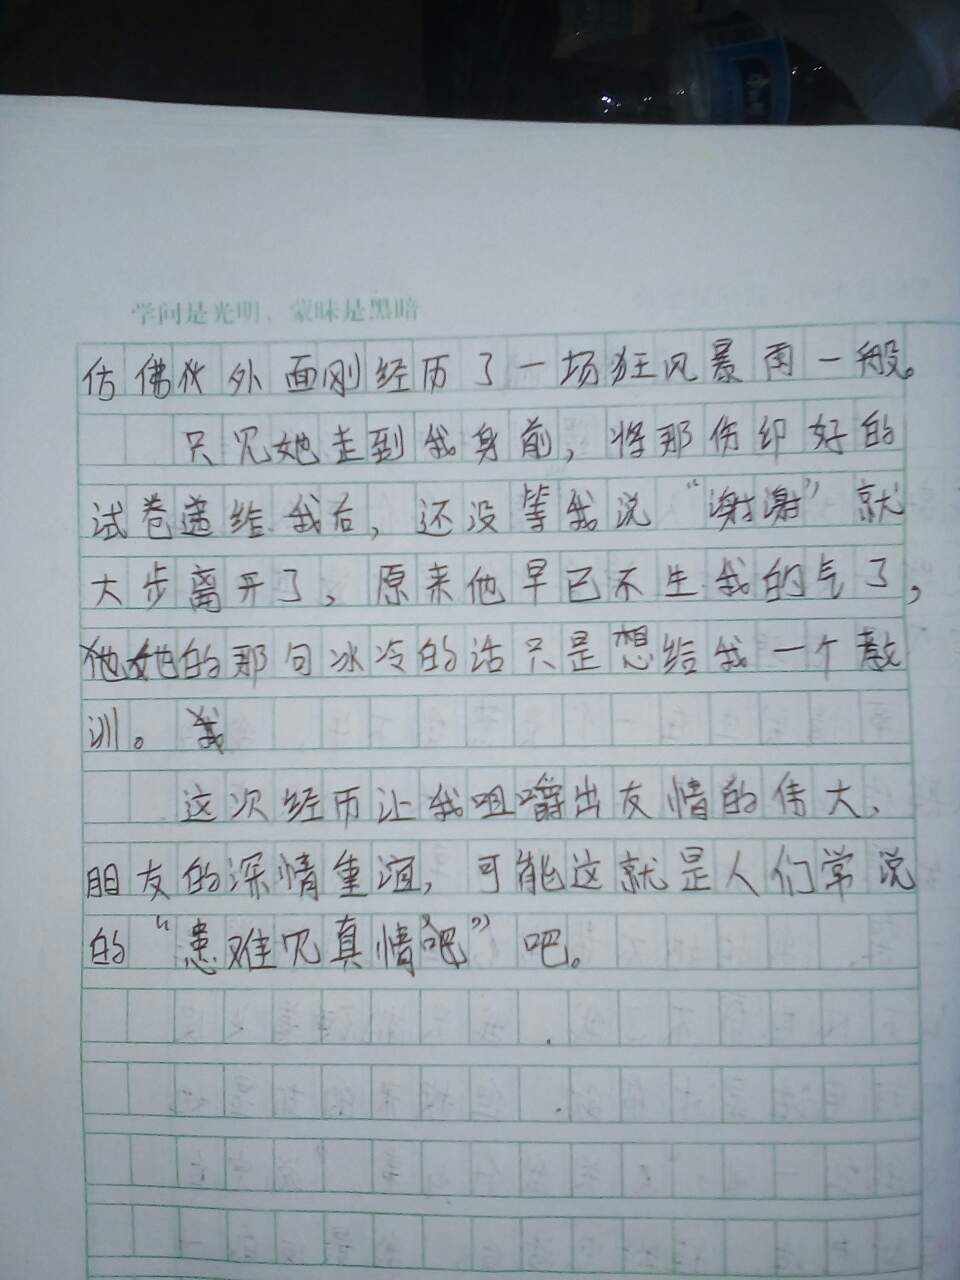 学问是光明，蒙昧是黑暗
仿佛外面刚经历了一场狂风暴雨一般。
只见她走到我身前，将那份印好的
试卷递给我后，还没等我说“谢谢”就
大步离开了，原来他早已不生我的气了，
她的那句冰冷的话只是想给我一个教
训。
这次经历让我咀嚼出友情的伟大、
朋友的深情重谊，可能这就是人们常说
的“患难见真情”吧。